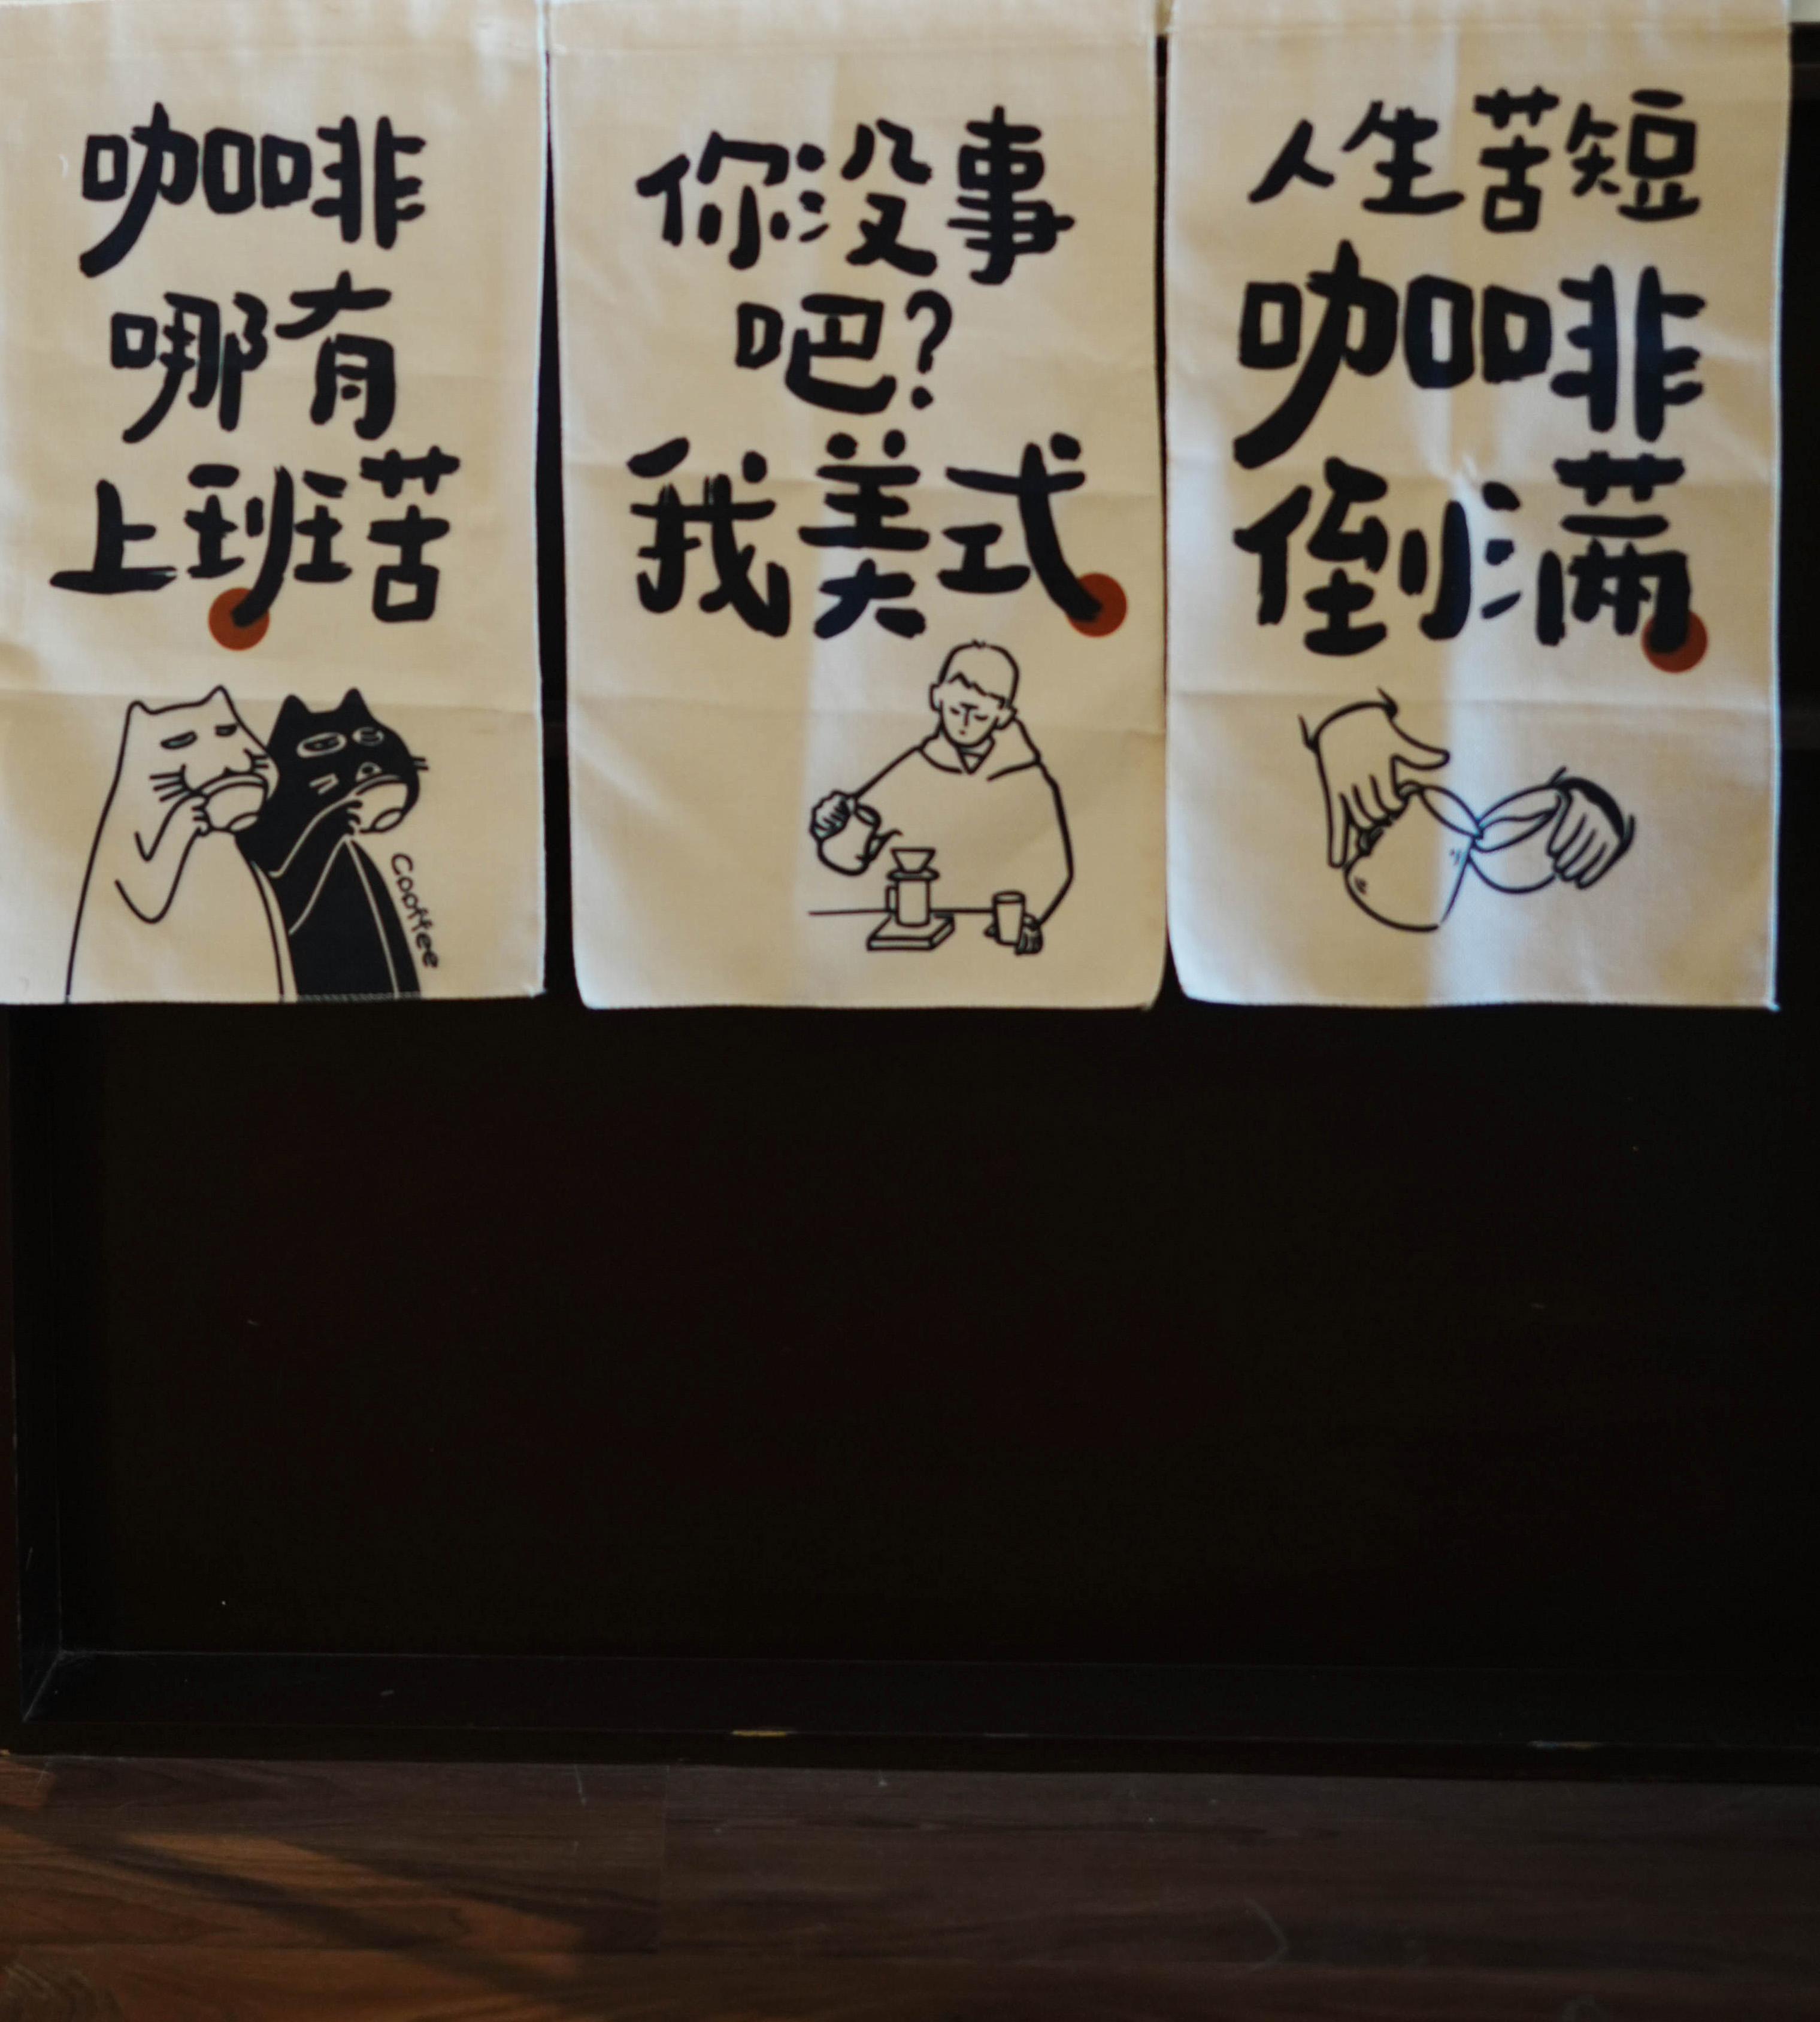 咖啡
哪有
上班苦
Cooffee
你没事
吧?
我美式
人生苦短
咖啡
倒满